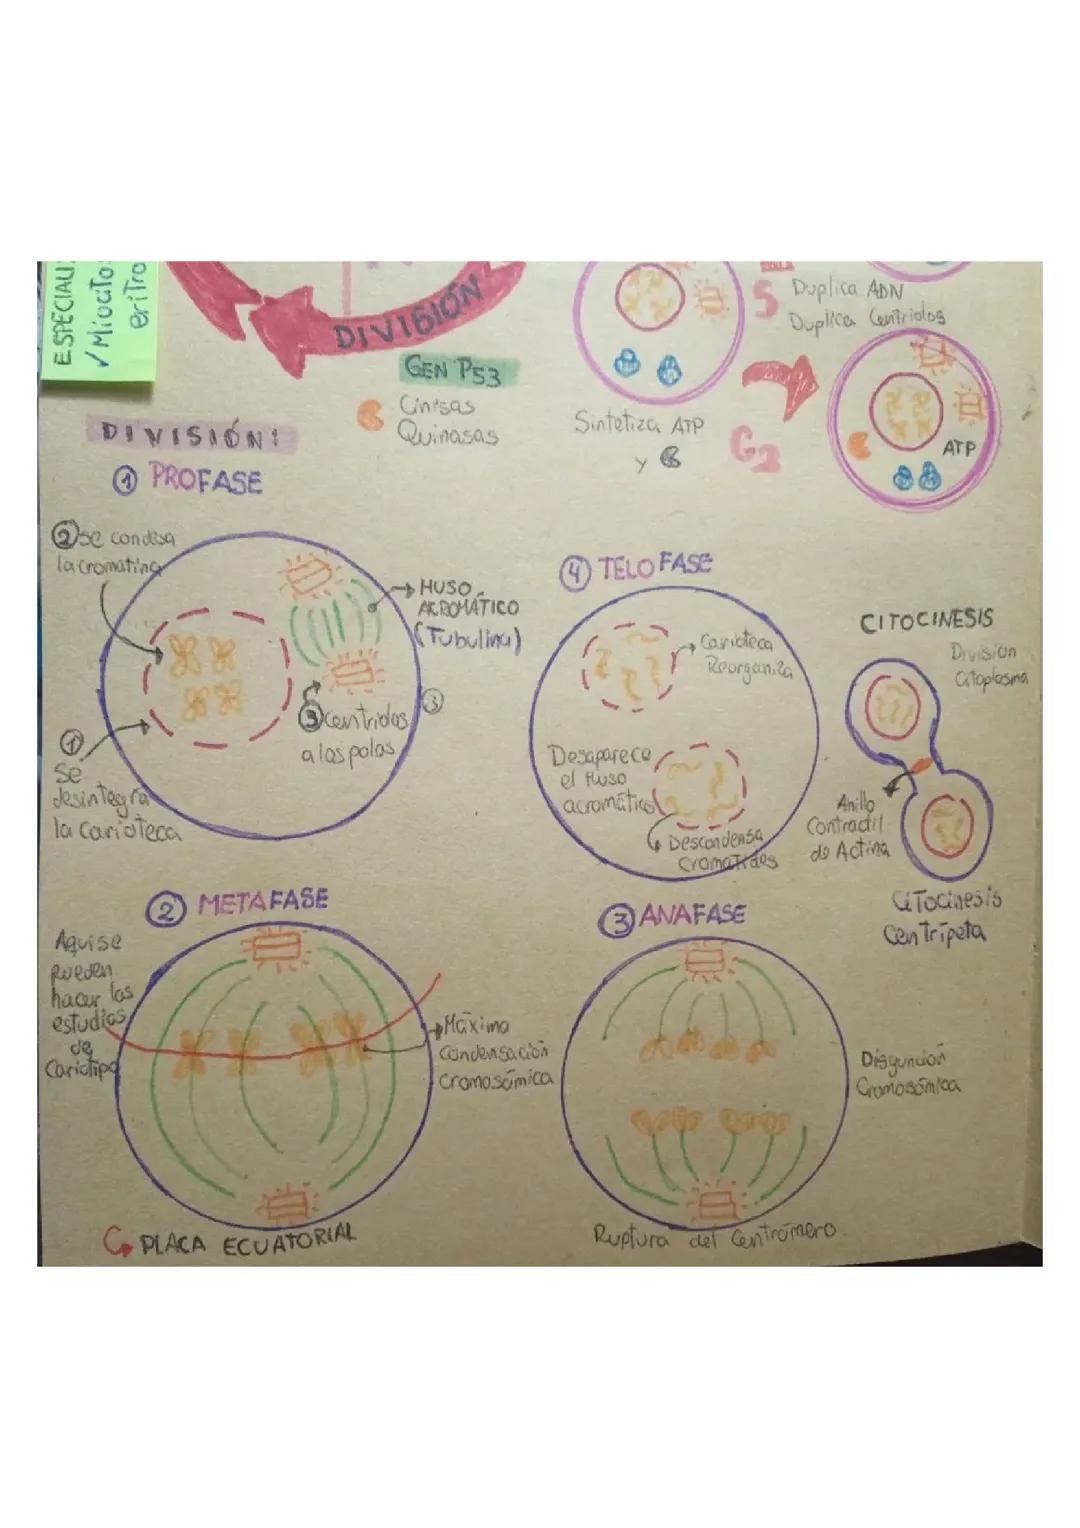 ESPECIALI
✓Miocito
eritro
DIVISIÓN
GEN P53
Cinisas
Quinasas
S
Duplica ADN
Duplica Centriolos
Sintetiza ATP
y
G2
ATP
DIVISIÓN:
① PROFASE
② se condesa
la cromatina
→ HUSO
ACROMÁTICO
(Tubulina)
③ centriolos
a los polos
③
①
Se
desintegra
la carioteca
④ TELOFASE
Carioteca
Reorganiza
Desaparece
el Huso
acromático
Descondensa
cromatides
CITOCINESIS
División
Citoplasma
Anillo
Contractil
de Actina
Citocinesis
Centrípeta
② METAFASE
Aquise
pueden
hacer los
estudios
de
Cariotipo
Máxima
Condensación
Cromosómica
PLACA ECUATORIAL
③ ANAFASE
Disyunción
Cromosómica
Ruptura del Centrómero